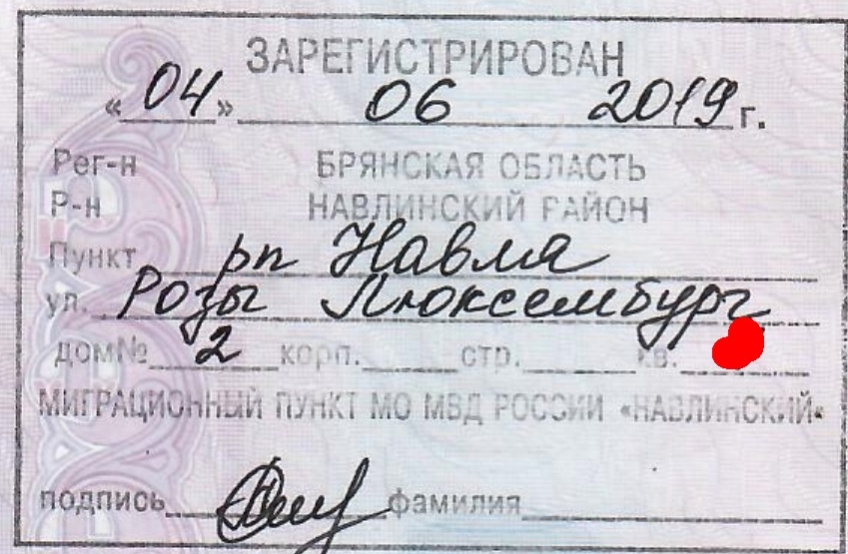 ЗАРЕГИСТРИРОВАН
«04» 06 2019 г.
Рег-н БРЯНСКАЯ ОБЛАСТЬ
Р-н НАВЛИНСКИЙ РАЙОН
Пункт рп Навля
ул. Розы Люксембург
дом№ 2 корп. стр. кв.
МИГРАЦИОННЫЙ ПУНКТ МО МВД РОССИИ «НАВЛИНСКИЙ»
подпись фамилия